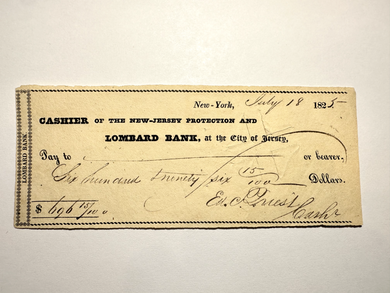 New-York, July 18 1825
CASHIER OF THE NEW-JERSEY PROTECTION AND
LOMBARD BANK, at the City of Jersey,
Pay to or bearer,
Six hundred & ninety six 15/100 Dollars.
$ 696 15/100
Cashr
LOMBARD BANK